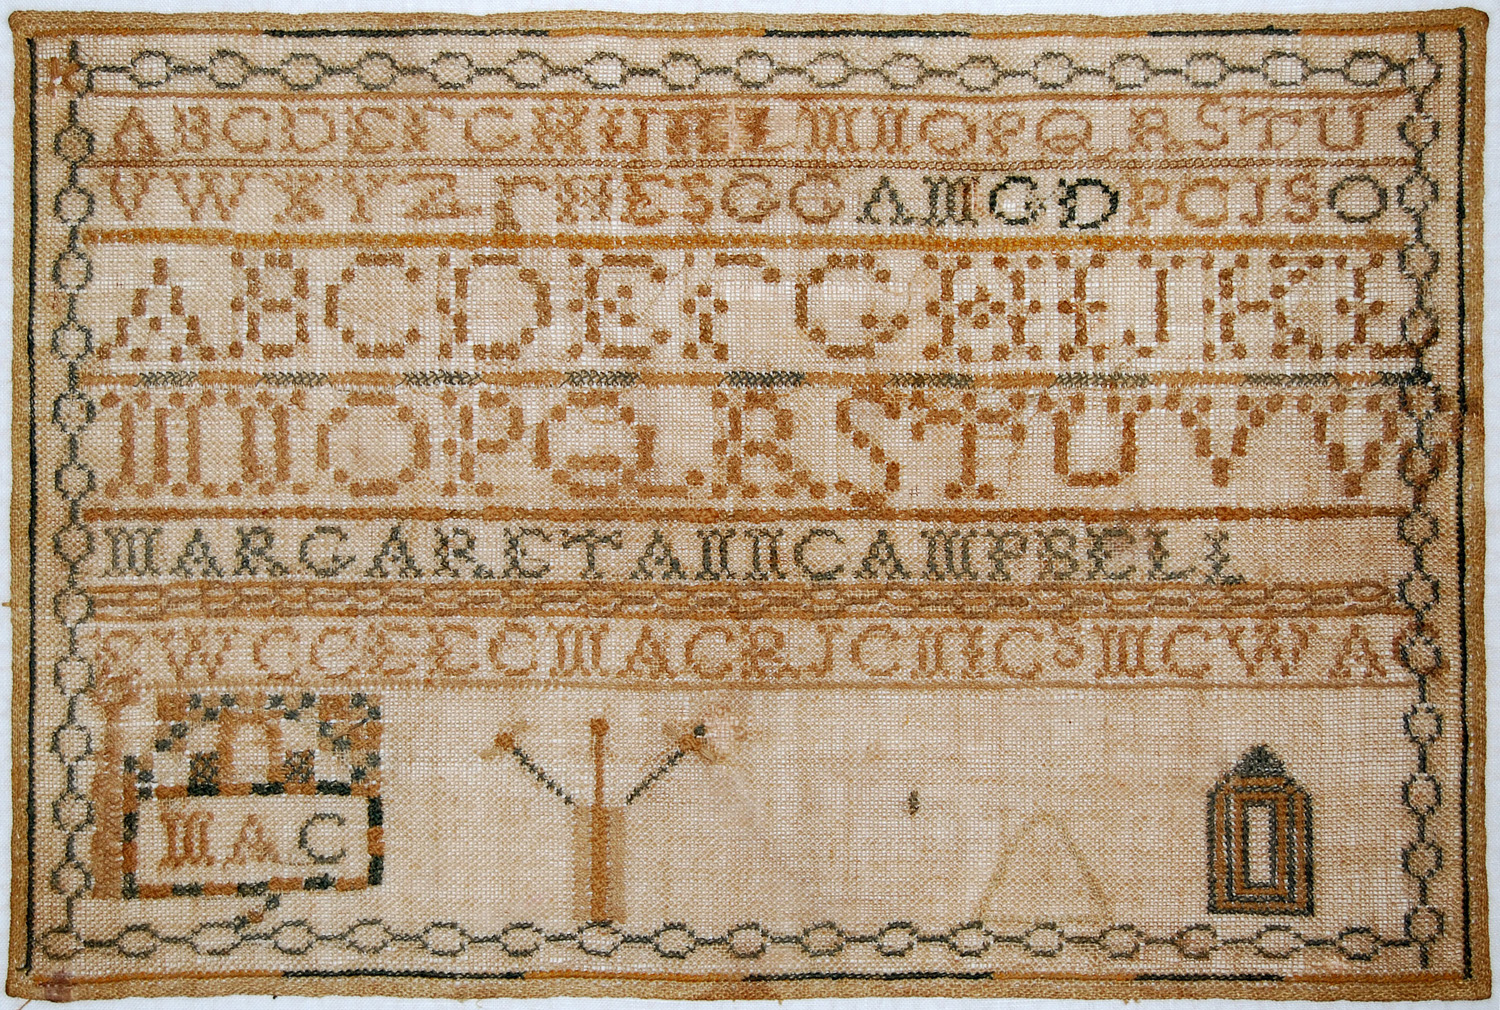 A B C D E F G H I J K L M N O P Q R S T U
V W X Y Z F H E S G G A M G D P C J S O
A B C D E F G H I J K L
M N O P Q R S T U V V
MARGARET ANN CAMPBELL
W C C E E C M A C R J C N C S M C W A C
M A C